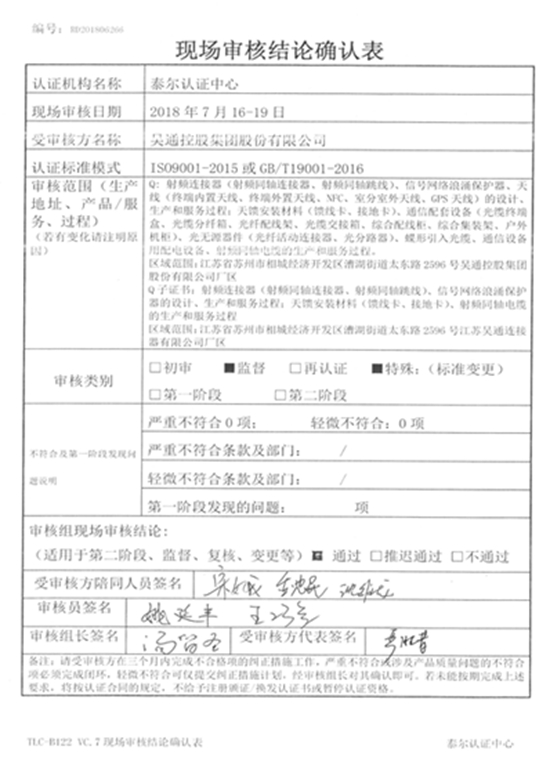 编号: RD201806266
现场审核结论确认表
认证机构名称 泰尔认证中心
现场审核日期 2018 年 7 月 16-19 日
受审核方名称 吴通控股集团股份有限公司
认证标准模式 ISO9001-2015 或 GB/T19001-2016
审核范围（生产地址、产品/服务、过程）
（若有变化请注明原因）
Q: 射频连接器（射频同轴连接器、射频同轴跳线）、信号网络浪涌保护器、天
线（终端内置天线、终端外置天线、NFC、室分室外天线、GPS 天线）的设计、
生产和服务过程; 天馈安装材料（馈线卡、接地卡）、通信配套设备（光缆终端
盒、光缆分纤箱、光纤配线架、光缆交接箱、综合配线柜、综合集装架、户外
机柜）、光无源器件（光纤活动连接器、光分路器）、蝶形引入光缆、通信设备
用配电设备、射频同轴电缆的生产和服务过程。
区域范围: 江苏省苏州市相城经济开发区漕湖街道太东路 2596 号吴通控股集团
股份有限公司厂区
Q 子证书: 射频连接器（射频同轴连接器、射频同轴跳线）、信号网络浪涌保护
器的设计、生产和服务过程; 天馈安装材料（馈线卡、接地卡）、射频同轴电缆
的生产和服务过程
区域范围: 江苏省苏州市相城经济开发区漕湖街道太东路 2596 号江苏吴通连接
器有限公司厂区
审核类别 □初审 ■监督 □再认证 ■特殊:（标准变更）
□第一阶段 □第二阶段
不符合及第一阶段发现问题说明
严重不符合 0 项; 轻微不符合: 0 项
严重不符合条款及部门: /
轻微不符合条款及部门: /
第一阶段发现的问题: 项
审核组现场审核结论:
（适用于第二阶段、监督、复核、变更等）■ 通过 □推迟通过 □不通过
受审核方陪同人员签名
审核员签名
审核组长签名 受审核方代表签名
备注: 请受审核方在三个月内完成不合格项的纠正措施工作，严重不符合或涉及产品质量问题的不符合
项必须完成闭环，轻微不符合可仅提交纠正措施计划，经审核组长对其确认即可。若未能按期完成上述
要求，将按认证合同的规定，不给予注册颁证/换发认证书或暂停认证资格。
TLC-B122 VC.7 现场审核结论确认表 泰尔认证中心